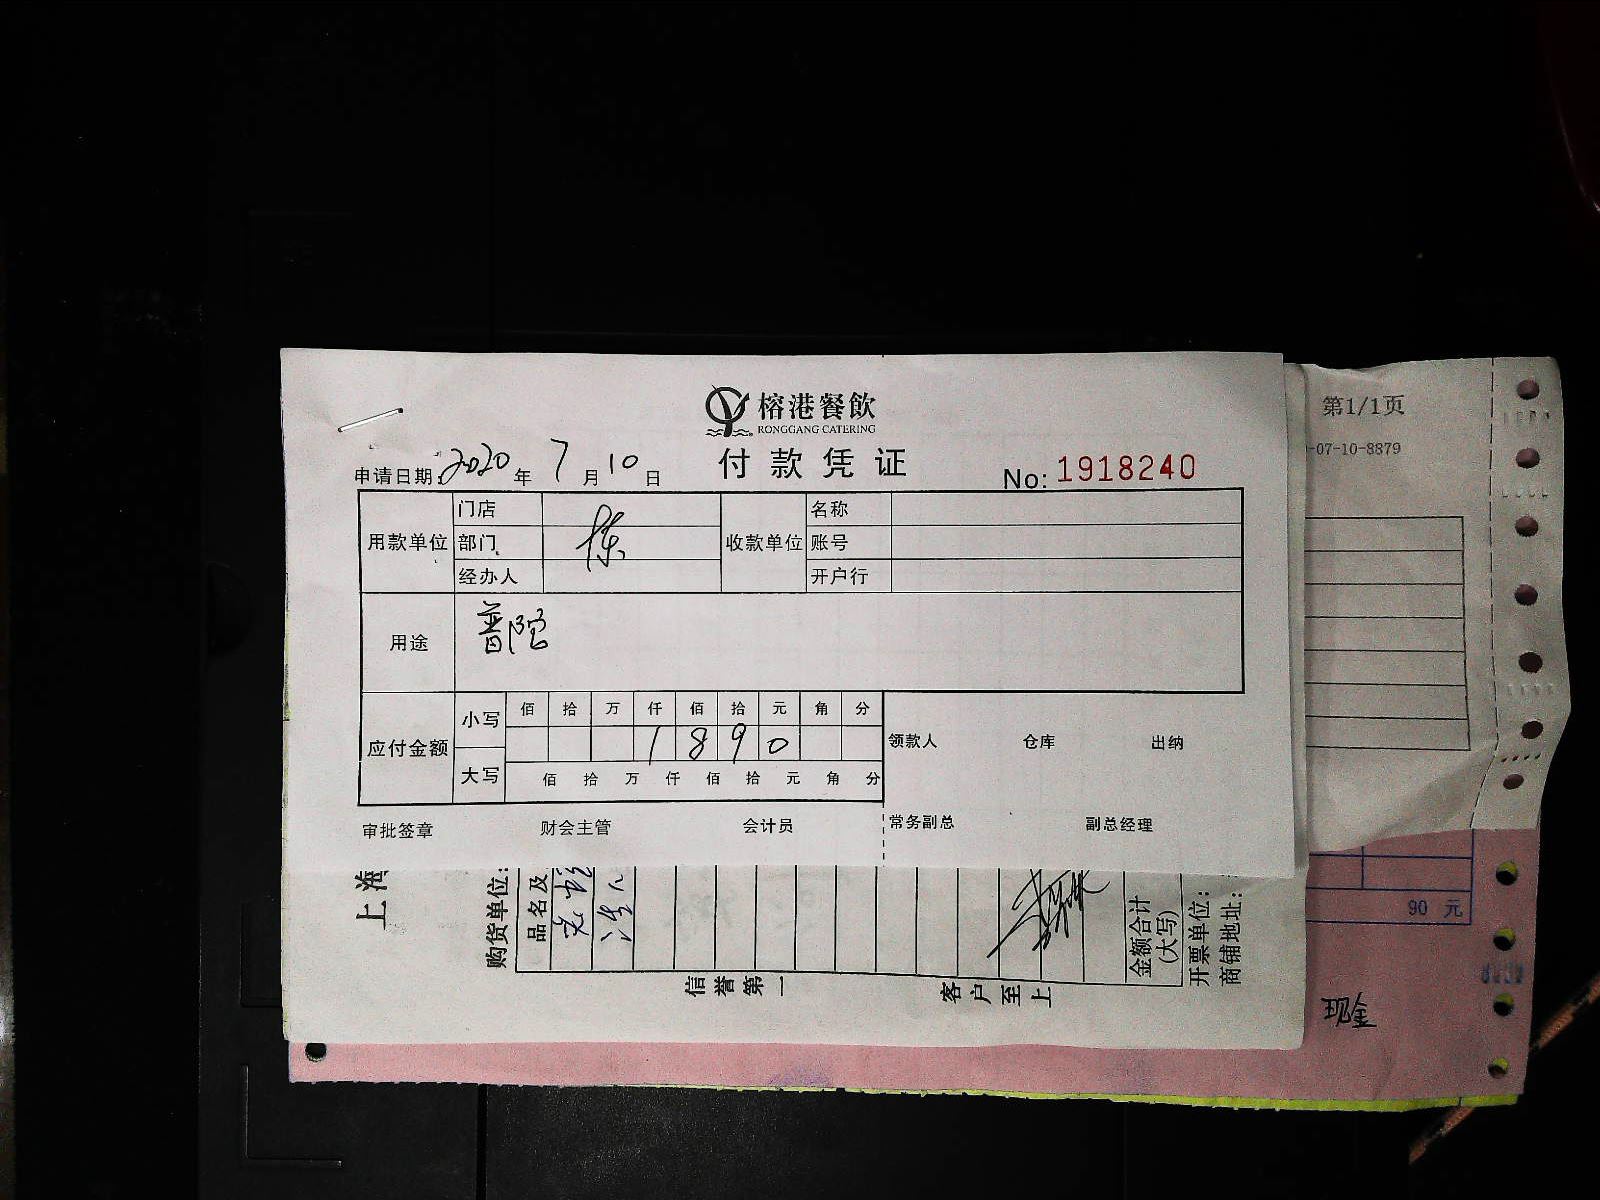 榕港餐飲
RONGGANG CATERING
付款凭证
申请日期: 2020 年 7 月 10 日 No: 1918240
用款单位 门店 收款单位 名称
部门 陈 账号
经办人 开户行
用途 普陀
应付金额 小写 佰 拾 万 仟 佰 拾 元 角 分
1 8 9 0
大写 佰 拾 万 仟 佰 拾 元 角 分
领款人 仓库 出纳
审批签章 财会主管 会计员 常务副总 副总经理
第1/1页
-07-10-8879
90 元
现金
上海
购货单位:
品名及
信誉第一
客户至上
金额合计
(大写)
开票单位:
商铺地址: